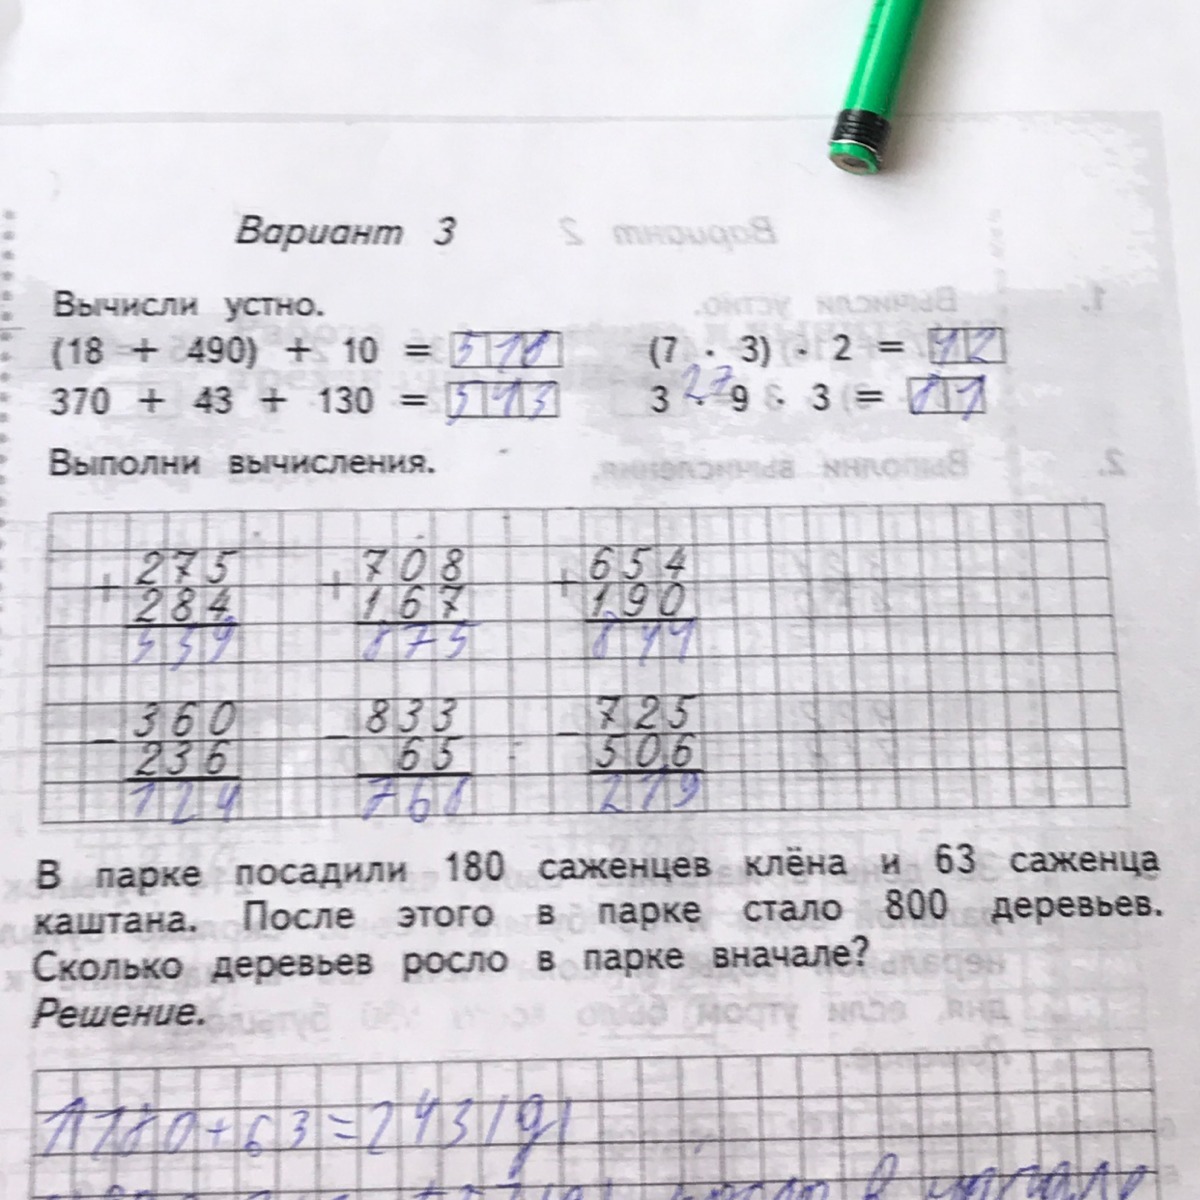 Вариант 3
Вычисли устно.
(18 + 490) + 10 = 518
(7 · 3) · 2 = 42
370 + 43 + 130 = 543
27
3 · 9 · 3 = 81
Выполни вычисления.
275 708 654
+ + +
284 167 190
559 875 844
360 833 725
- - -
236 65 506
124 768 219
В парке посадили 180 саженцев клёна и 63 саженца
каштана. После этого в парке стало 800 деревьев.
Сколько деревьев росло в парке вначале?
Решение.
1) 180 + 63 = 243 (д)